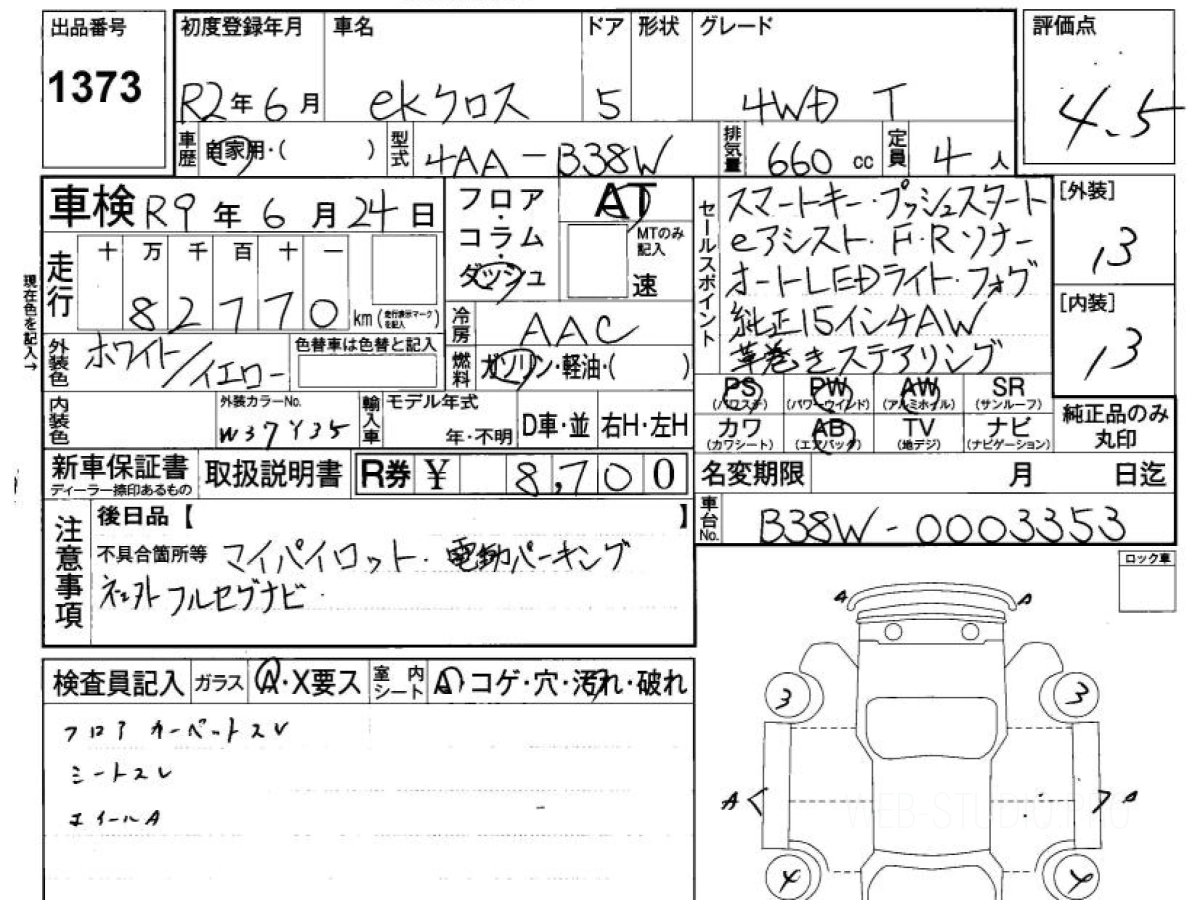 出品番号
1373
初度登録年月 車名 ドア 形状 グレード
R2年6月 ekクロス 5 4WD T
車歴 自家用・( ) 型式 4AA-B38W 排気量 660 cc 定員 4人
評価点
4.5
車検 R9年6月24日
フロア・コラム・ダッシュ
AT
MTのみ記入
速
走行 十 万 千 百 十 一
82770 km (走行表示マークを記入)
現在色を記入→
外装色 ホワイト/イエロー
色替車は色替と記入
冷房 AAC
燃料 ガソリン・軽油・( )
セールスポイント
スマートキー・プッシュスタート
eアシスト・F・Rソナー
オートLEDライト・フォグ
純正15インチAW
革巻きステアリング
[外装]
13
[内装]
13
内装色
外装カラーNo.
W37Y35
輸入車 モデル年式
年・不明 D車・並 右H・左H
PS PW AW SR
(パワステ) (パワーウインド) (アルミホイル) (サンルーフ)
カワ AB TV ナビ
(カワシート) (エアバッグ) (地デジ) (ナビゲーション)
純正品のみ
丸印
新車保証書 取扱説明書 R券 ¥ 8,700
ディーラー捺印あるもの
名変期限 月 日迄
車台No. B38W-0003353
注意事項
後日品【 】
不具合箇所等 マイパイロット・電動パーキング
フルセグナビ
ロック車
検査員記入 ガラス A・X要ス 室内シート A・コゲ・穴・汚れ・破れ
フロアカーペットスレ
シートスレ
A A
3 3
A A
4 4
WEB-STUDIO.PRO